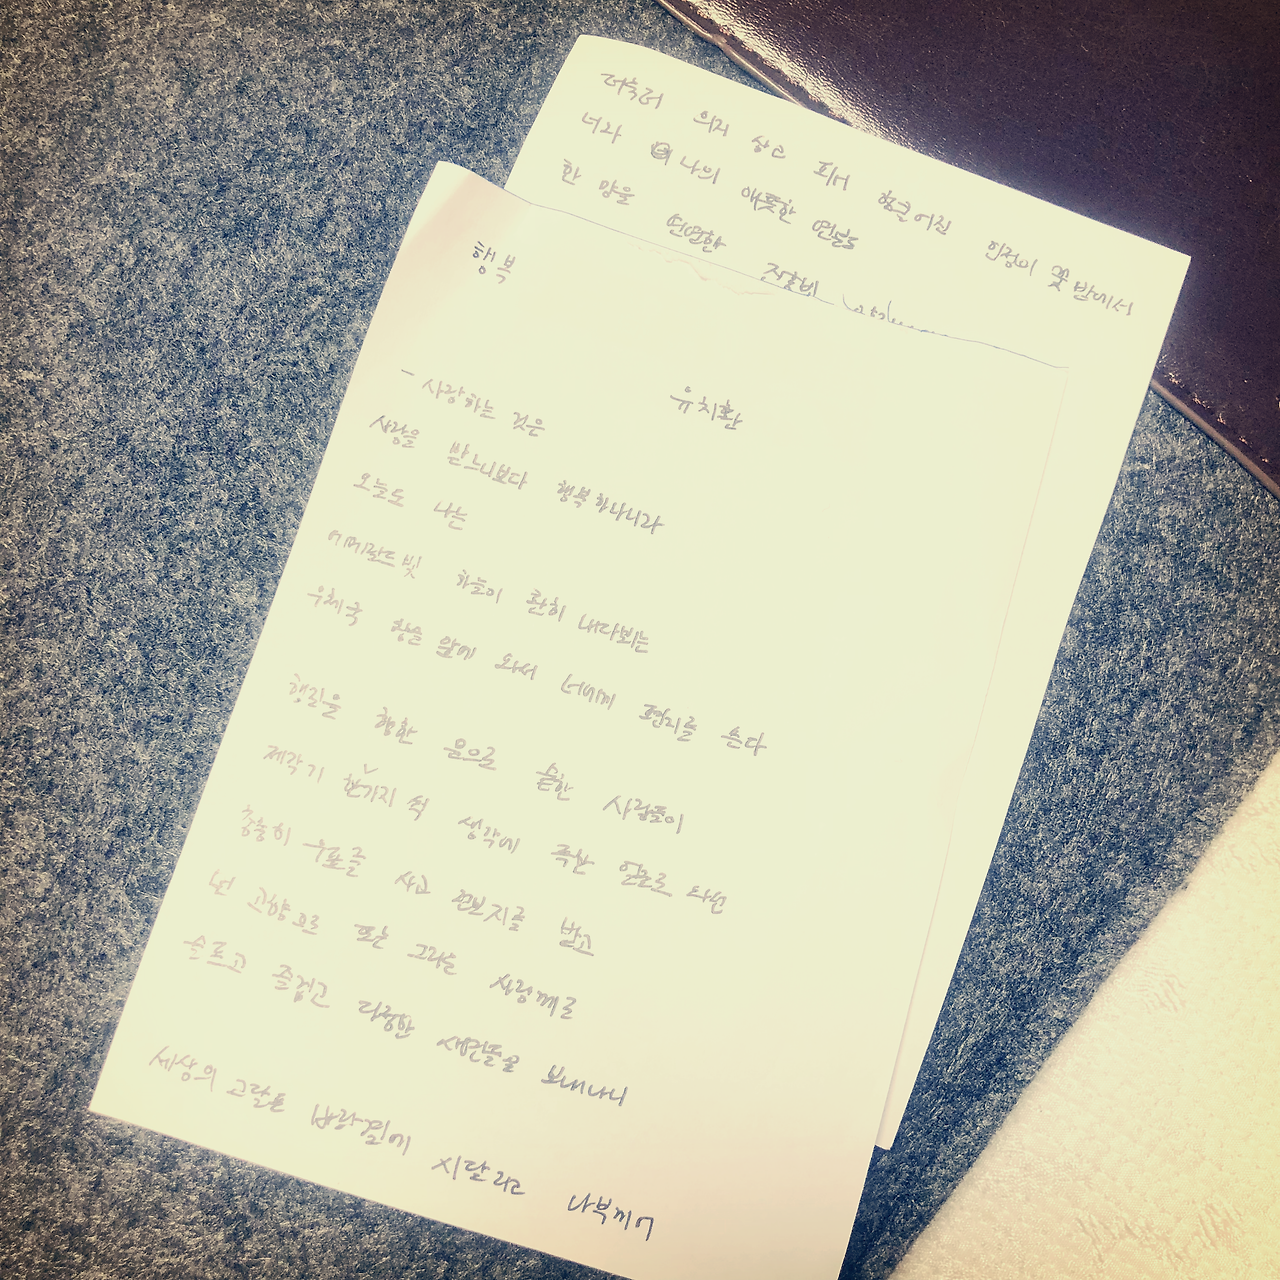 더욱더 의지 삼고 피어 헝클어진 인정의 꽃밭에서
너와 나의 애틋한 연분도
한 망울 연연한 진홍빛
행복
유치환
- 사랑하는 것은
사랑을 받느니보다 행복하나니라
오늘도 나는
에메랄드빛 하늘이 환히 내다뵈는
우체국 창문 앞에 와서 너에게 편지를 쓴다
행길을 향한 문으로 숱한 사람들이
제각기 한가지씩 생각에 족한 얼굴로 와선
총총히 우표를 사고 전보지를 받고
먼 고향으로 또는 그리운 사람께로
슬프고 즐겁고 다정한 사연들을 보내나니
세상의 고달픈 바람결에 시달리고 나부끼어